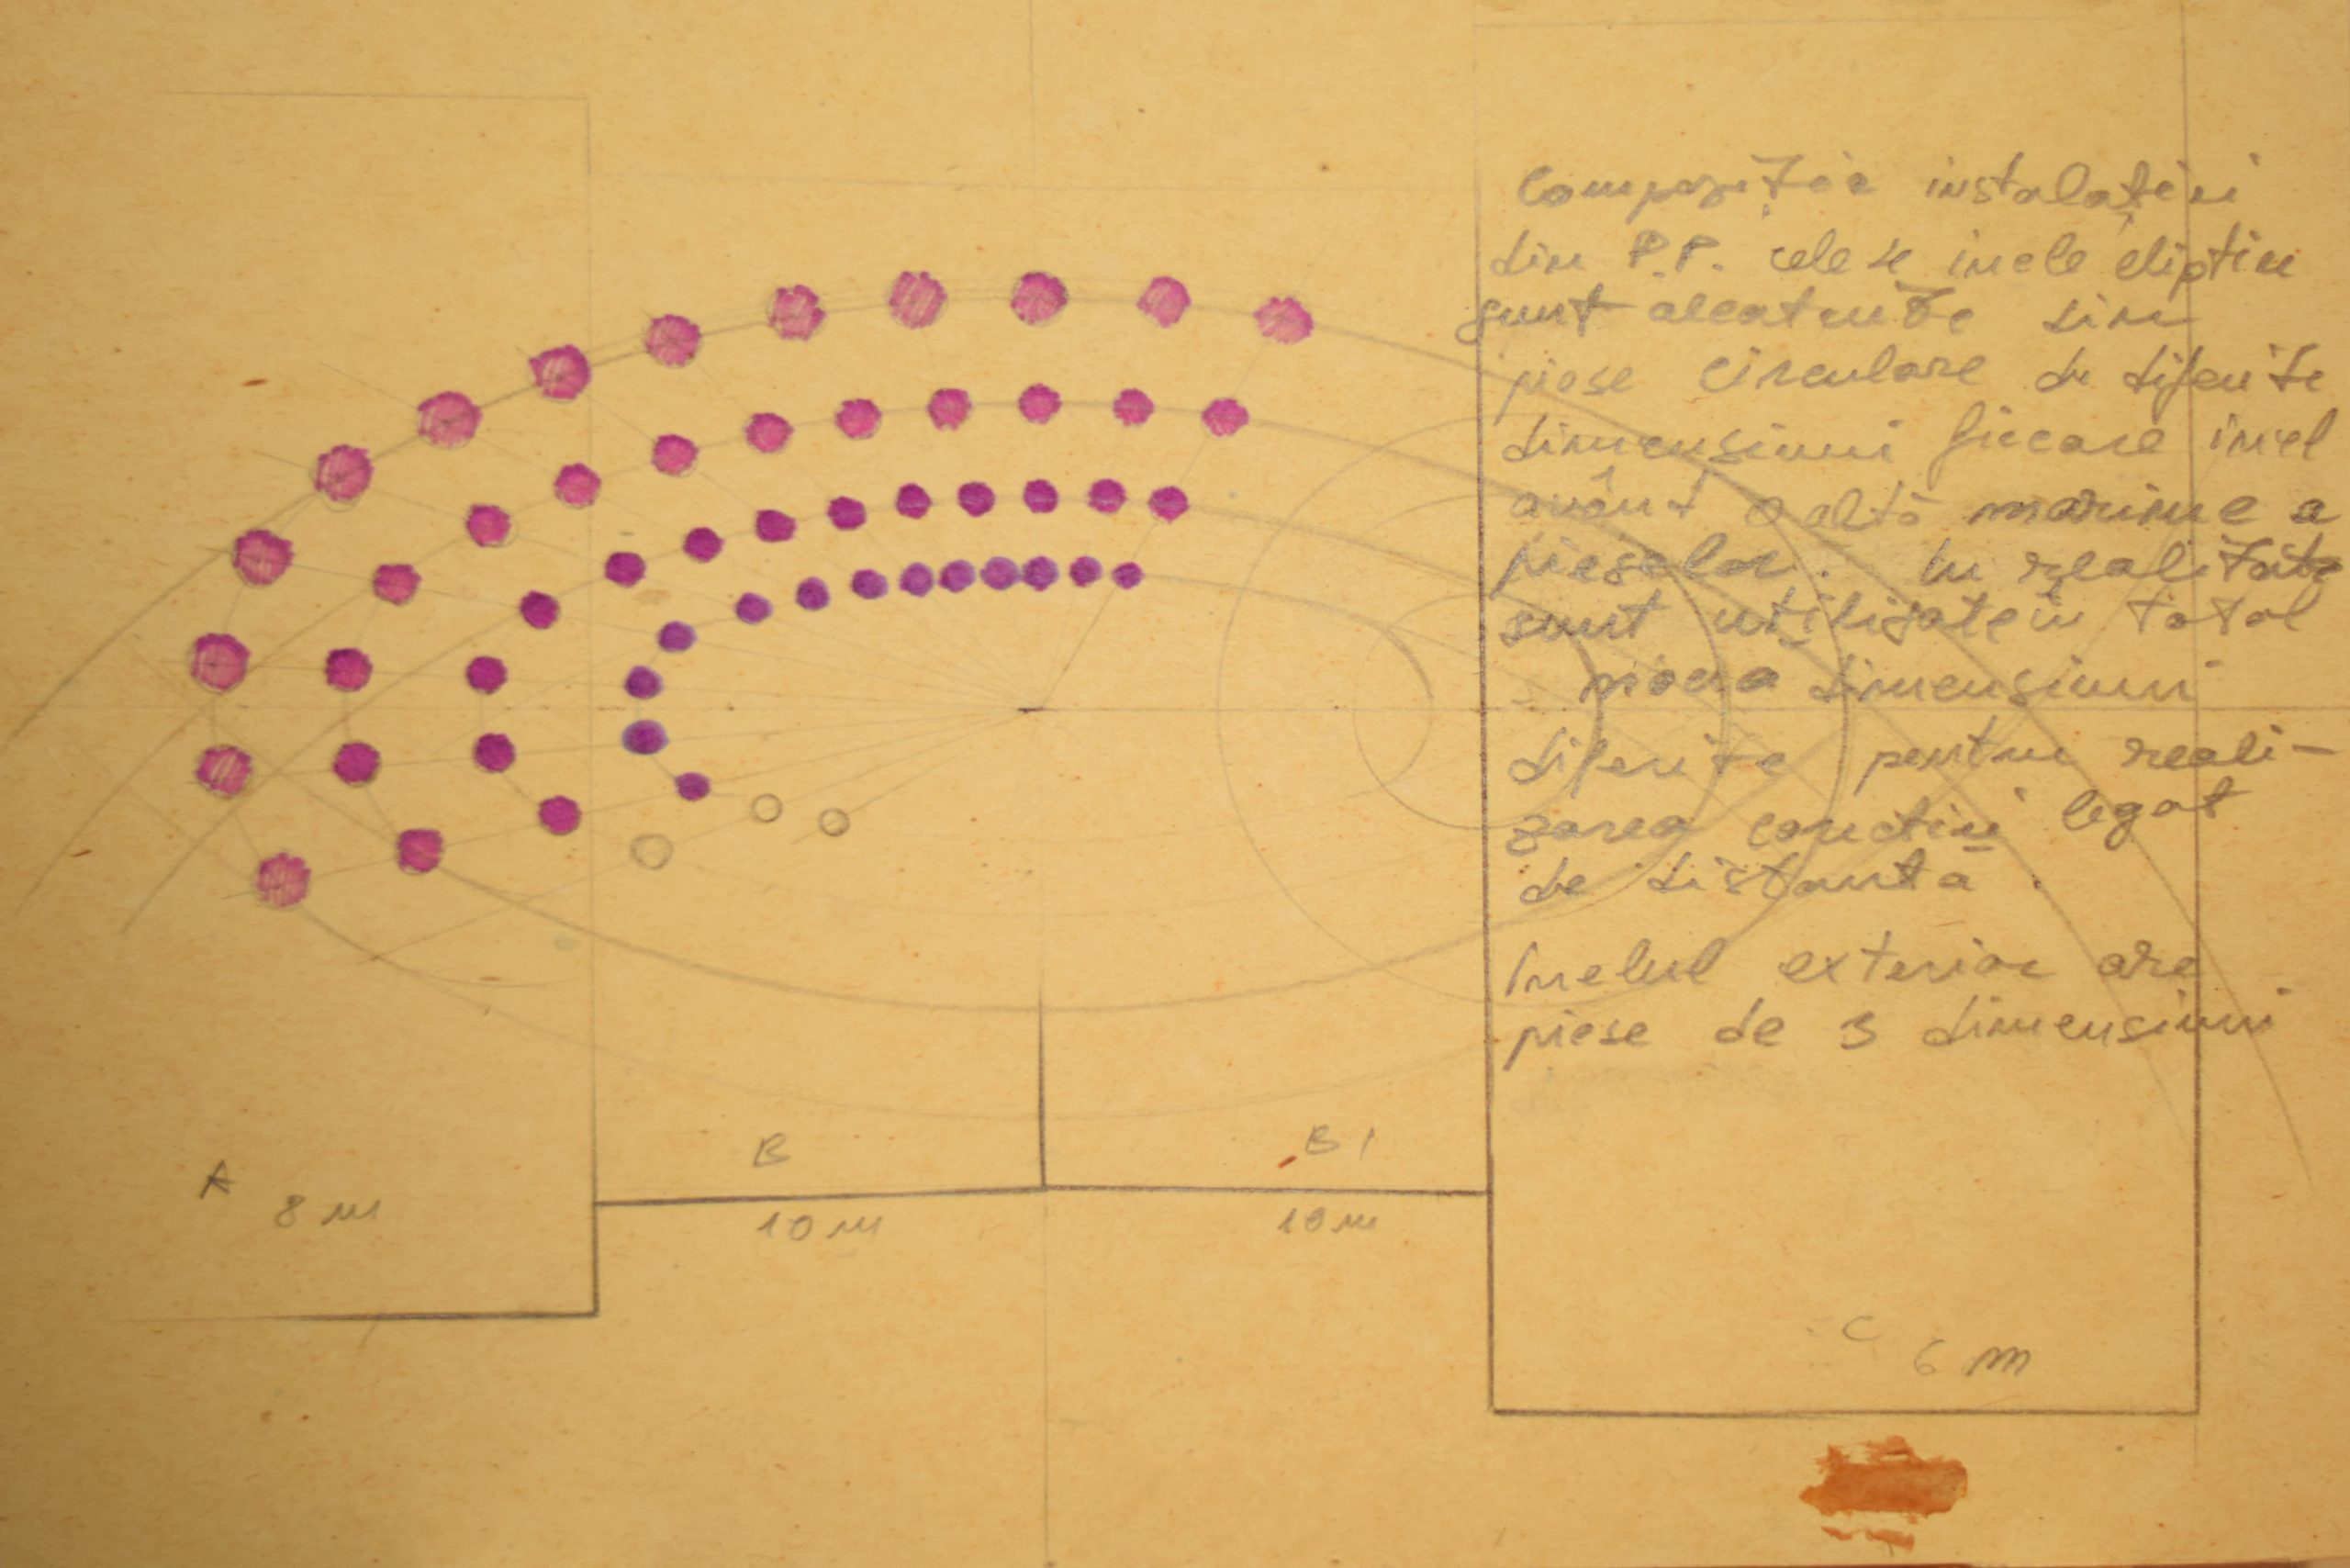 Compoziția instalației
din P.P. cele 4 inele eliptice
sunt alcatuite din
piese circulare de diferite
dimensiuni fiecare inel
avânt o altă marime a
pieselor. In realitate
sunt utilizate în total
noua dimensiuni
diferite pentru reali-
zarea legat
de distantă.
Inelul exterior are
piese de 3 dimensiuni
A 8 m
B
10 m
B1
10 m
C
6 m